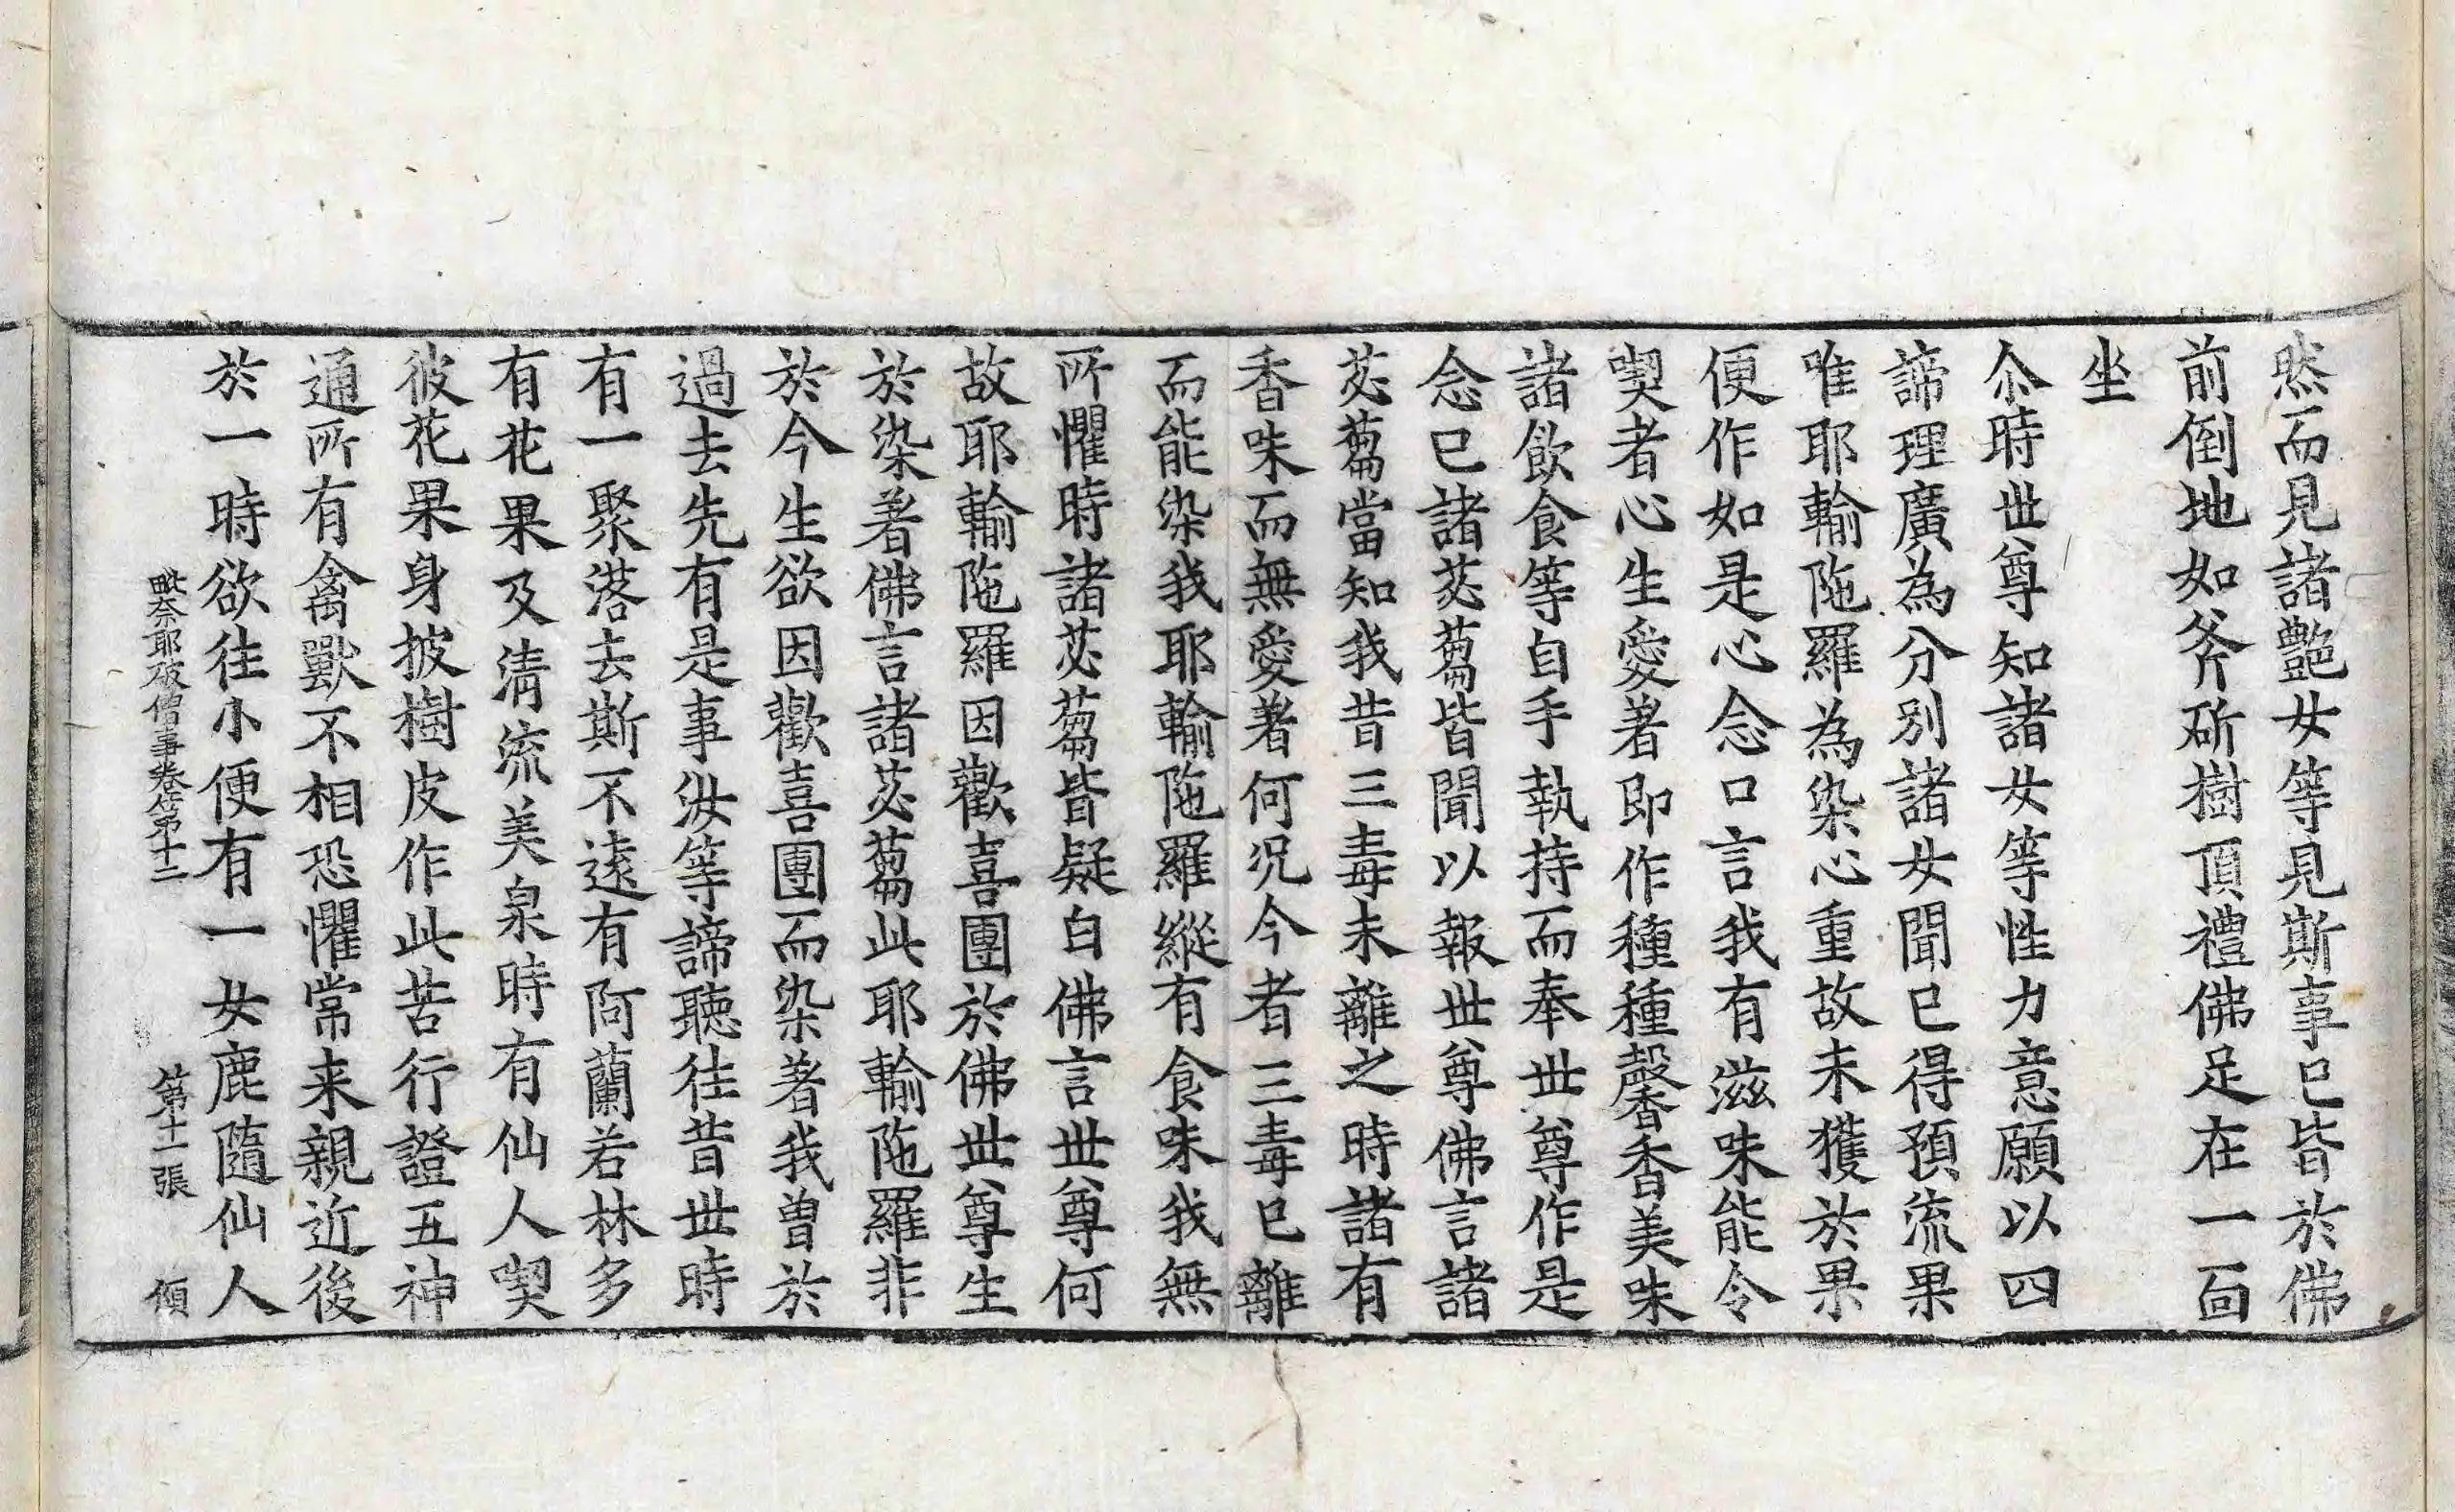 然而見諸艶女等見斯事已皆於佛
前倒地如斧斫樹頂禮佛足在一面
坐
尒時世尊知諸女等性力意願以四
諦理廣為分別諸女聞已得預流果
唯耶輸陁羅為染心重故未獲於果
便作如是心念口言我有滋味能令
喫者心生愛著即作種種馨香美味
諸飲食等自手執持而奉世尊作是
念已諸苾蒭皆聞以報世尊佛言諸
苾蒭當知我昔三毒未離之時諸有
香味而無愛著何況今者三毒已離
而能染我耶輸陁羅縱有食味我無
所懼時諸苾蒭皆疑白佛言世尊何
故耶輸陁羅因歡喜團於佛世尊生
於染著佛言諸苾蒭此耶輸陁羅非
於今生欲因歡喜團而染著我曾於
過去先有是事汝等諦聽往昔世時
有一聚落去斯不遠有阿蘭若林多
有花果及清流美泉時有仙人喫
彼花果身披樹皮作此苦行證五神
通所有禽獸不相恐懼常来親近後
於一時欲往小便有一女鹿隨仙人
毗奈耶破僧事卷第十二 第十一張 傾